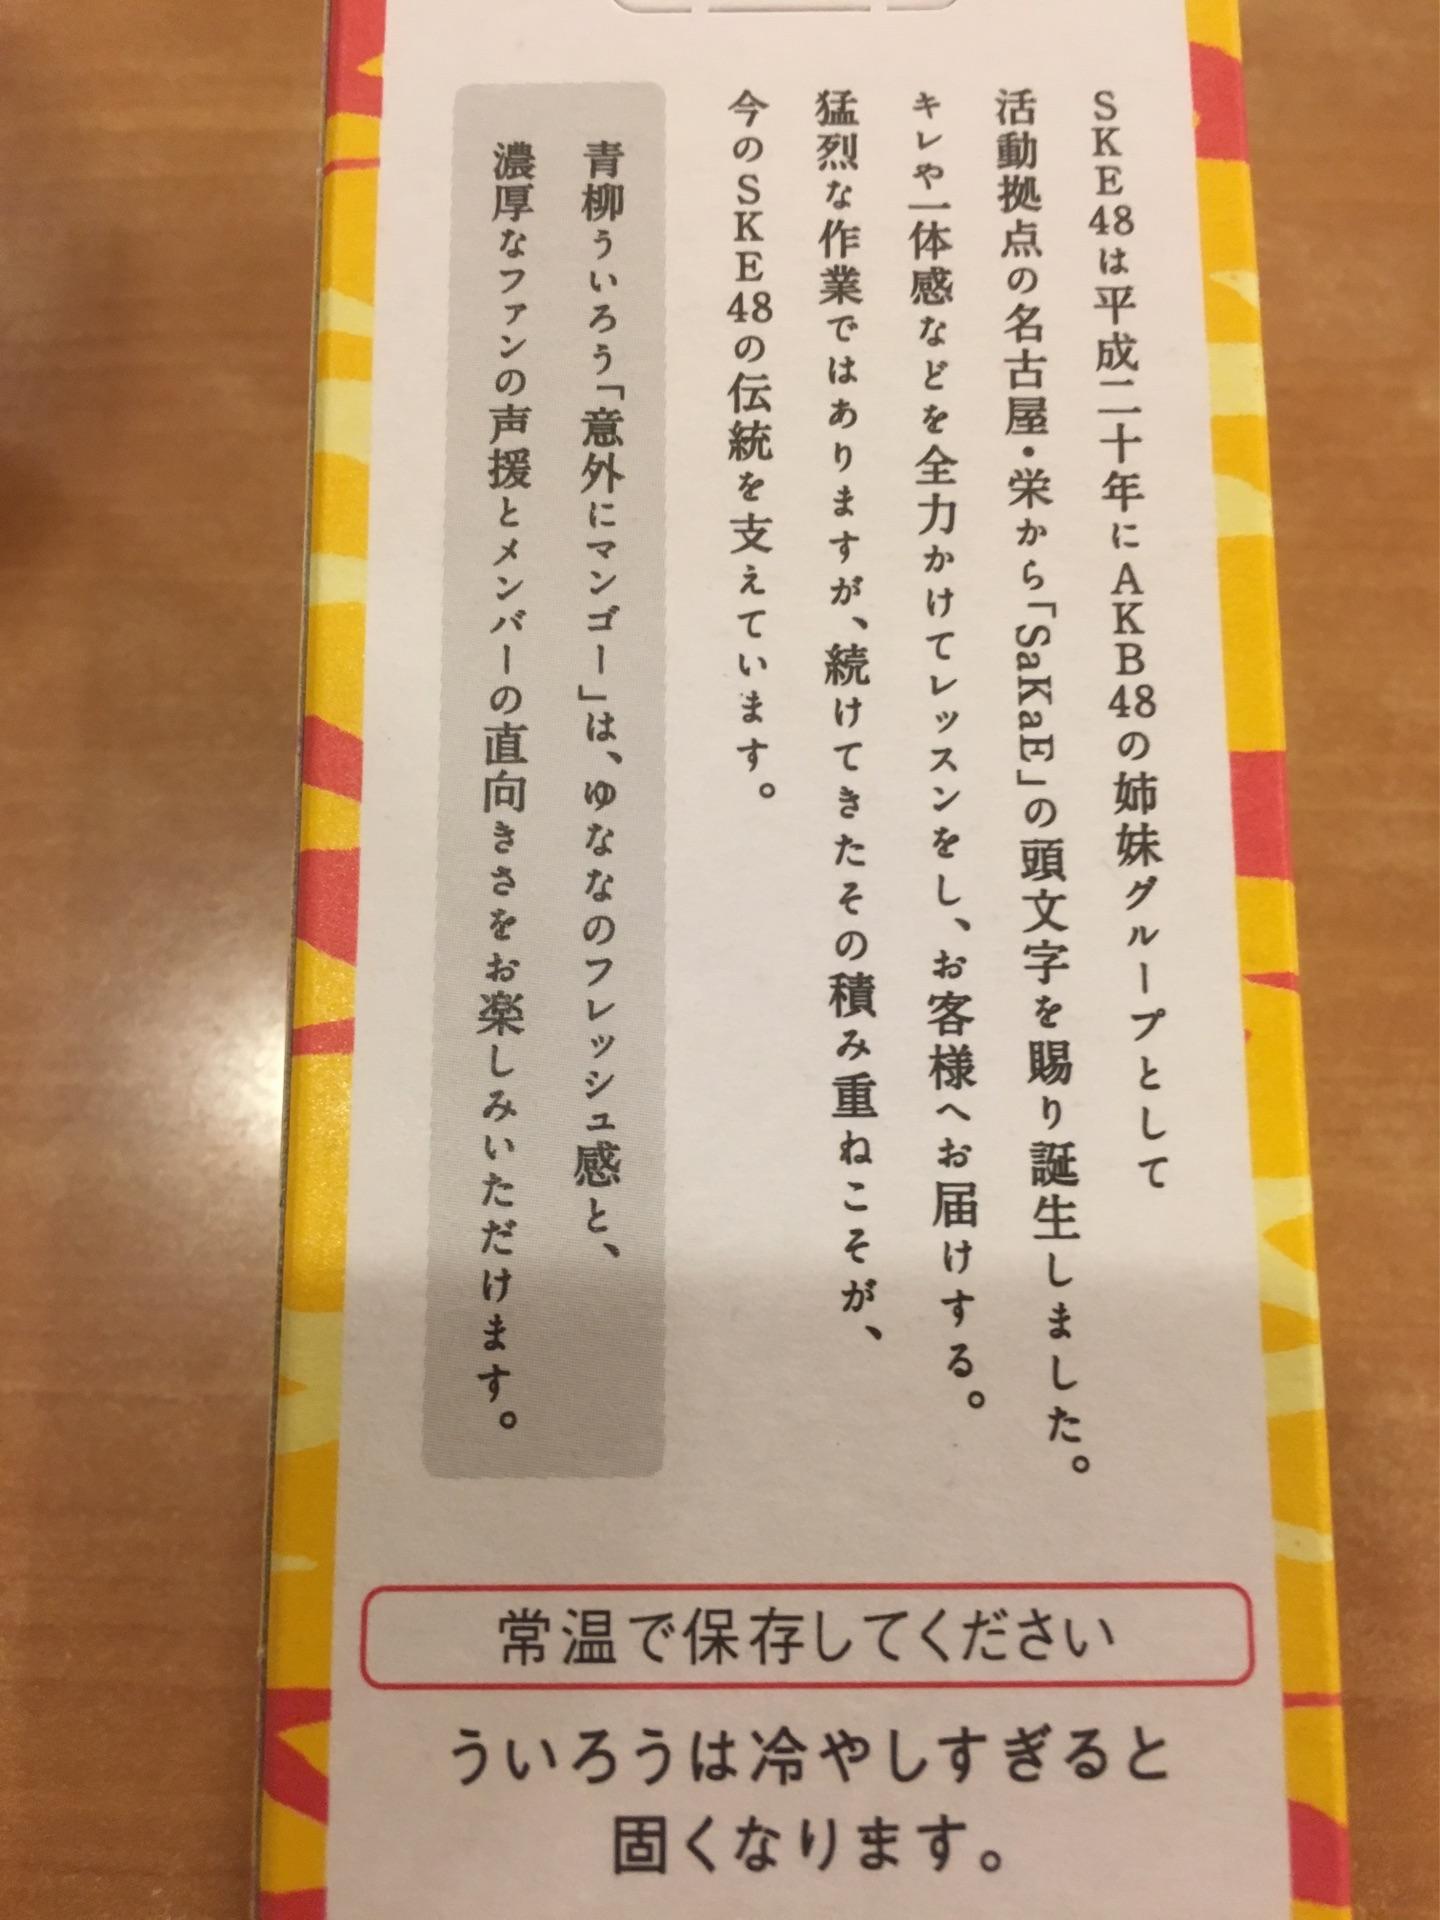 SKE48は平成二十年にAKB48の姉妹グループとして
活動拠点の名古屋・栄から「SaKaE」の頭文字を賜り誕生しました。
キレや一体感などを全力かけてレッスンをし、お客様へお届けする。
猛烈な作業ではありますが、続けてきたその積み重ねこそが、
今のSKE48の伝統を支えています。
青柳ういろう「意外にマンゴー」は、ゆななのフレッシュ感と、
濃厚なファンの声援とメンバーの直向きさをお楽しみいただけます。
常温で保存してください
ういろうは冷やしすぎると
固くなります。